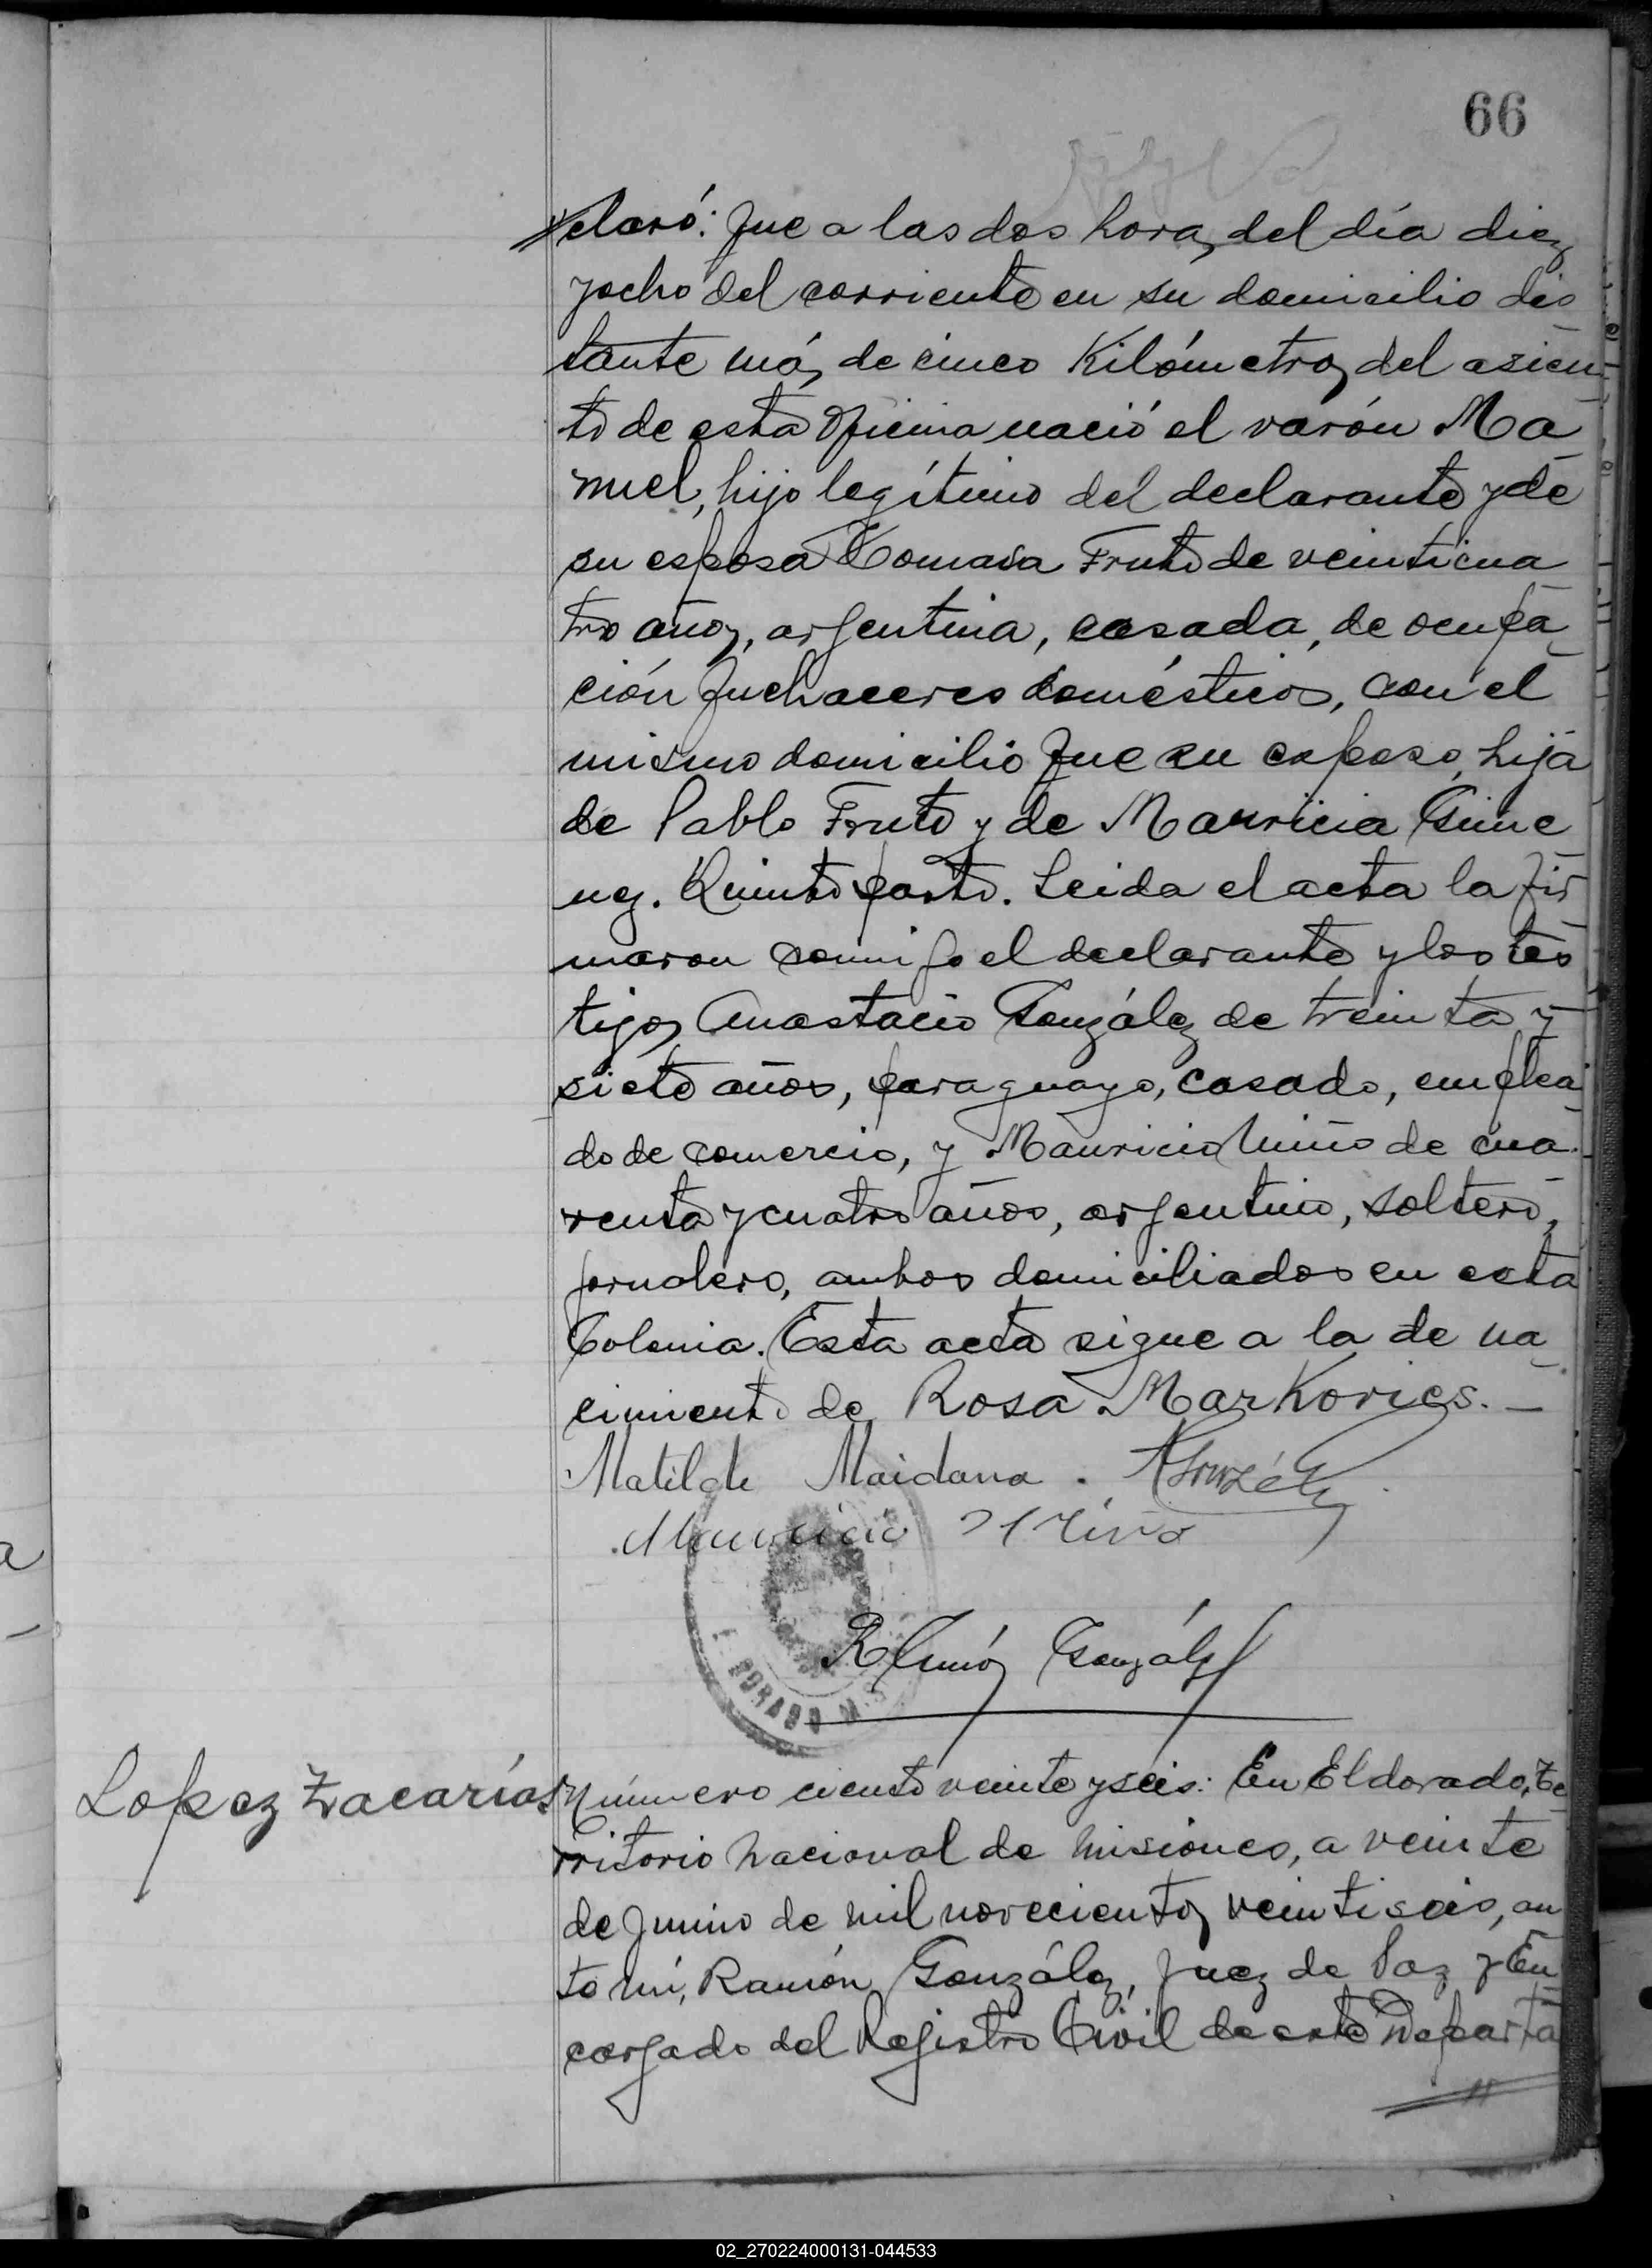 66
claró: que a las dos horas del día diez
y ocho del corriente en su domicilio dis
tante más de cinco Kilómetros del asien
to de esta Oficina nació el varón Ma
nuel, hijo legítimo del declarante y de
su esposa Tomasa Fruto de veinticua
tro años, argentina, casada, de ocupa
ción quehaceres domésticos, con el
mismo domicilio que su esposo, hija
de Pablo Fruto y de Mauricia Gime
nez. Quinto parto. Leida el acta la fir
maron conmigo el declarante y los tes
tigos Anastacio González de treinta y
siete años, paraguayo, casado, emplea
do de comercio, y Mauricio Niño de cua
renta y cuatro años, argentino, soltero,
jornalero, ambos domiciliados en esta
Colonia. Esta acta sigue a la de na
cimiento de Rosa Markovics. —
Matilde Maidana. A González
Mauricio Niño
Ramón González
ELDORADO
Lopez Zacarías
Número ciento veinte y seis: En Eldorado, Te
rritorio Nacional de Misiones, a veinte
de Junio de mil novecientos veintiseis, an
te mí, Ramón González, Juez de Paz y En
cargado del Registro Civil de este Departa
02_270224000131-044533